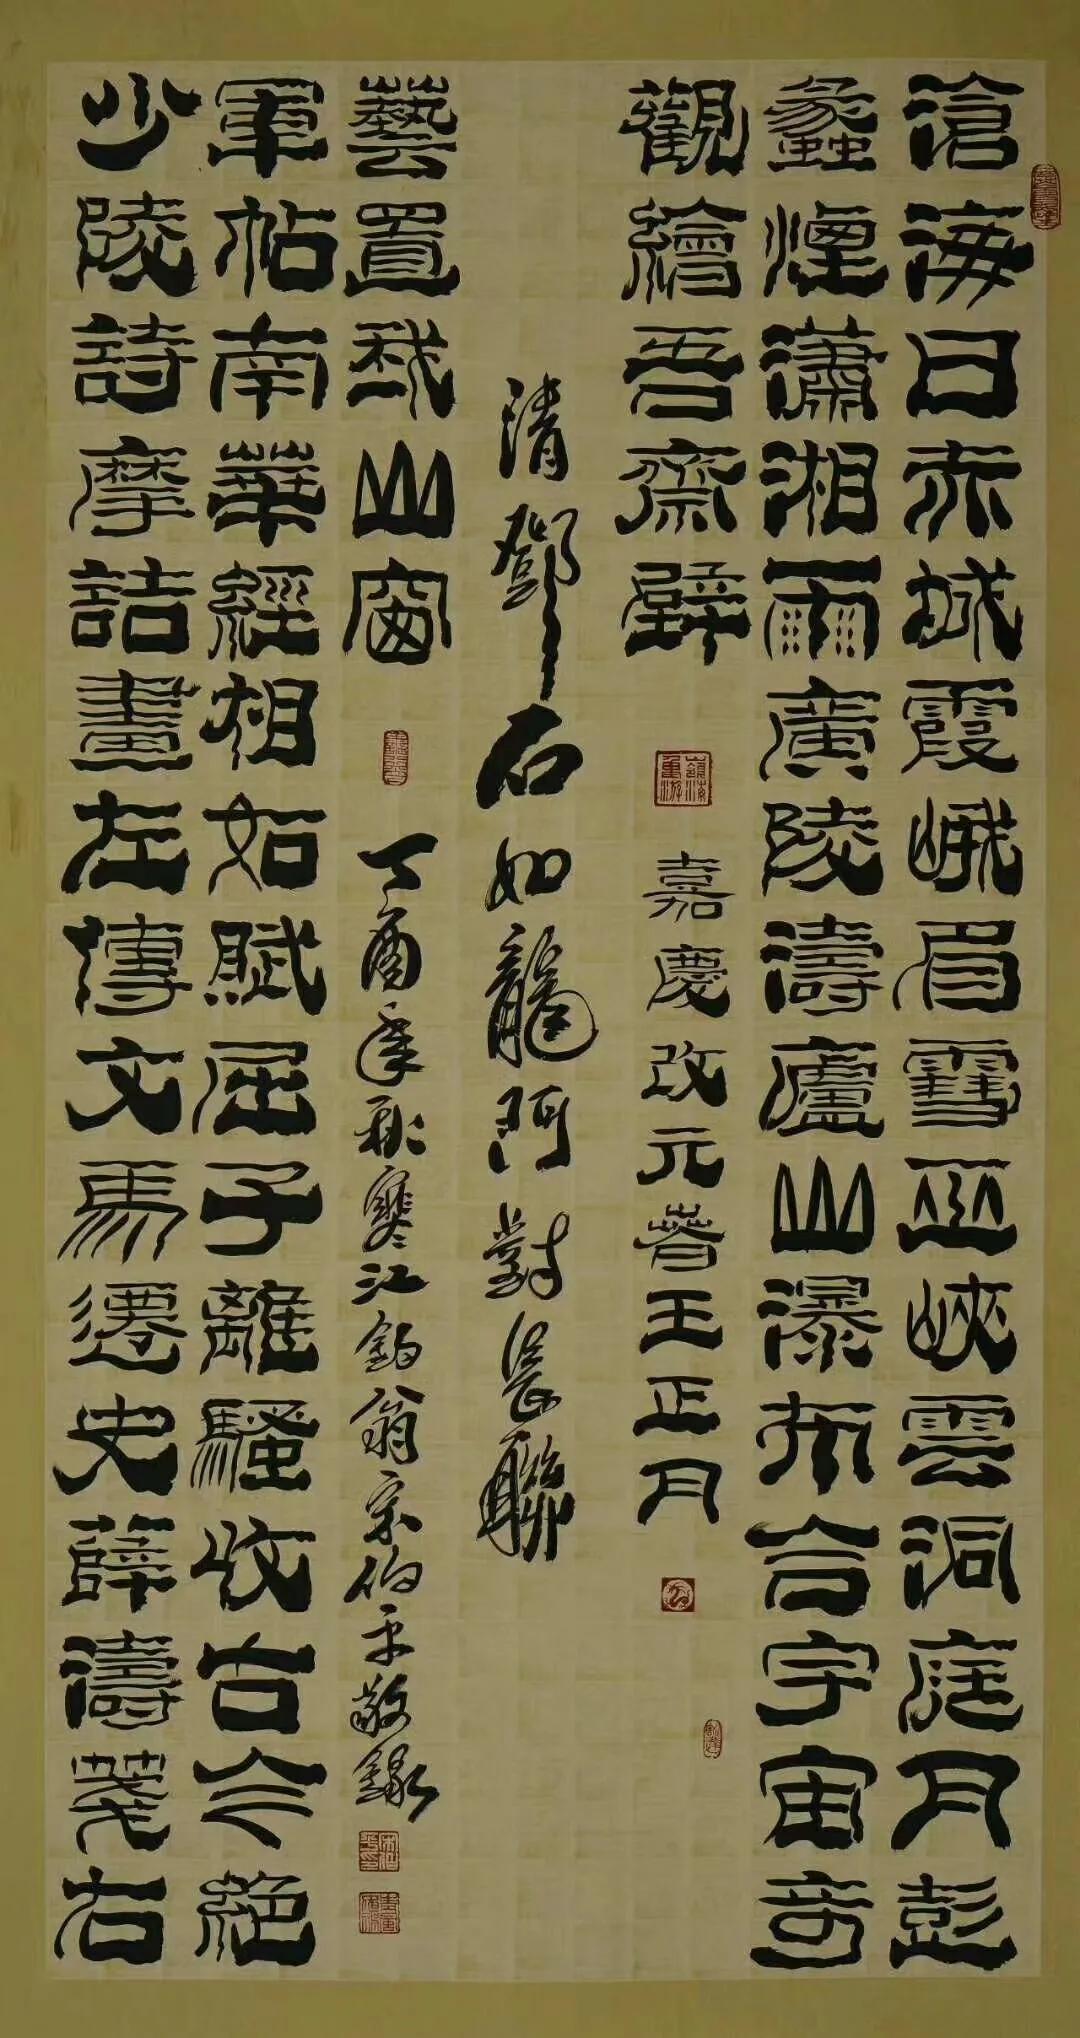 滄海日赤城霞峨眉雪巫峽雲洞庭月彭
蠡煙瀟湘雨廣陵濤廬山瀑布合宇宙奇
觀繪吾齋壁
嘉慶改元春王正月
清鄧石如龍門對長聯
少陵詩摩詰畫左傳文馬遷史薛濤箋右
軍帖南華經相如賦屈子離騷收古今絕
藝置我山窗
丁酉年秋寒江釣翁宋伯平敬錄